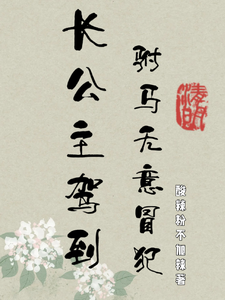 长公主驾到
驸马无意冒犯
酸辣粉不加辣著